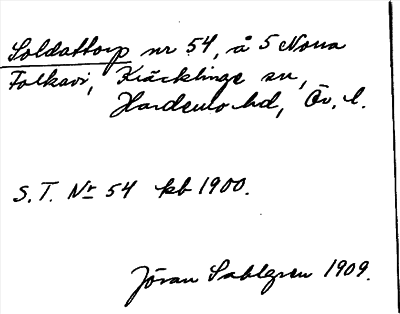 Soldattorp nr 54, å 5 Norra
Folkavi, Kräcklinge sn,
Hardemo hd, Ör. l.
S. T. Nr 54 kb 1900.
Jöran Sahlgren 1909.